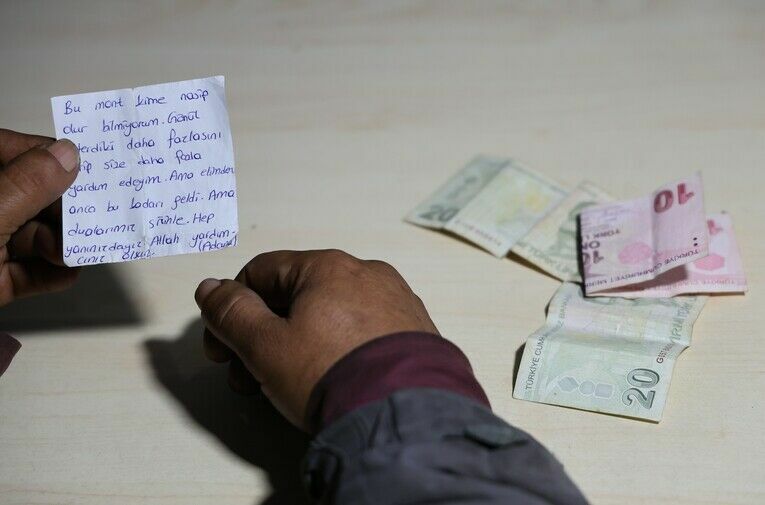 Bu mont kime nasip
olur bilmiyorum. Gönül
isterdiki daha fazlasını
alıp size daha fazla
yardım edeyim. Ama elimden
anca bu kadarı geldi. Ama
dualarımız sizinle. Hep
yanınızdayız. Allah yardım-
cınız olsun. (Adana)
20
10
10
TÜRK
TÜRKİYE CUMHURİYET MERK
TÜRKİYE CUMHUR
20